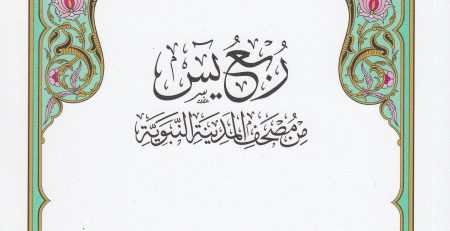 رُبْعُ يسٓ
مِنْ مُصْحَفِ المَدِينَةِ النَّبَوِيَّةِ